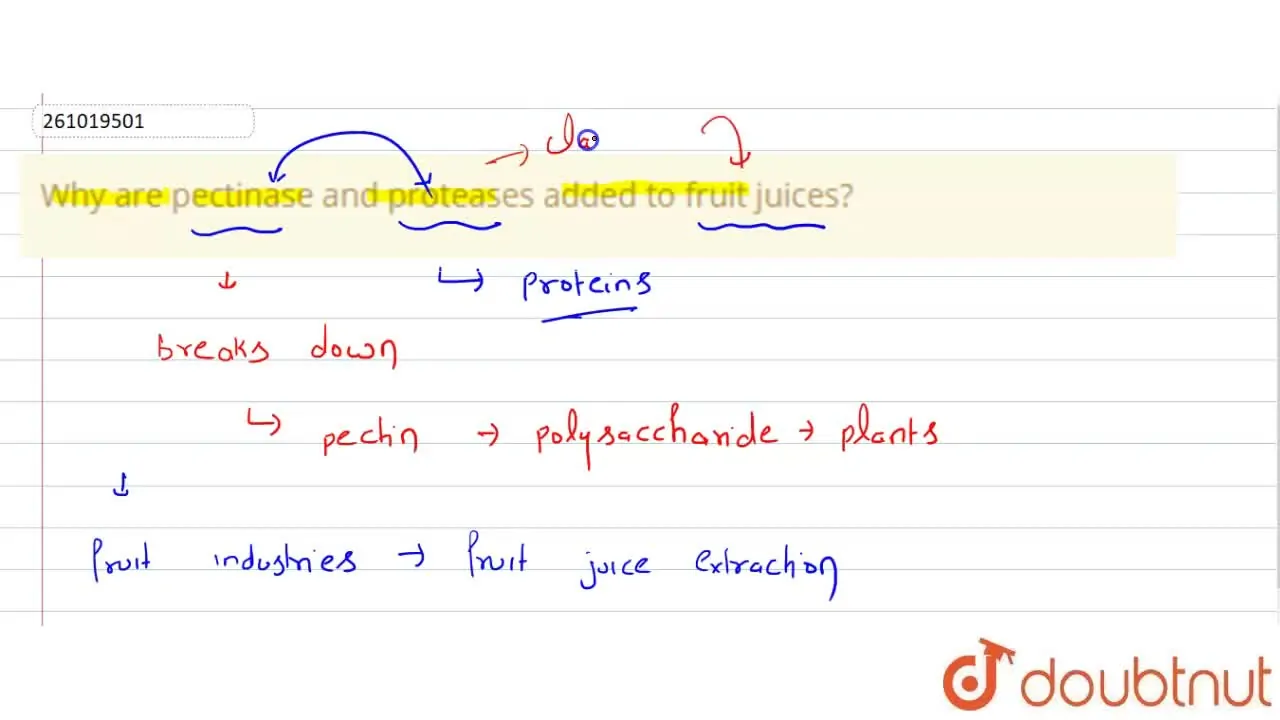 261019501
Why are pectinase and proteases added to fruit juices?
→ Cla
↓ ↳ proteins
breaks down
↳ pectin → polysaccharide → plants
↓
fruit industries → fruit juice extraction
doubtnut